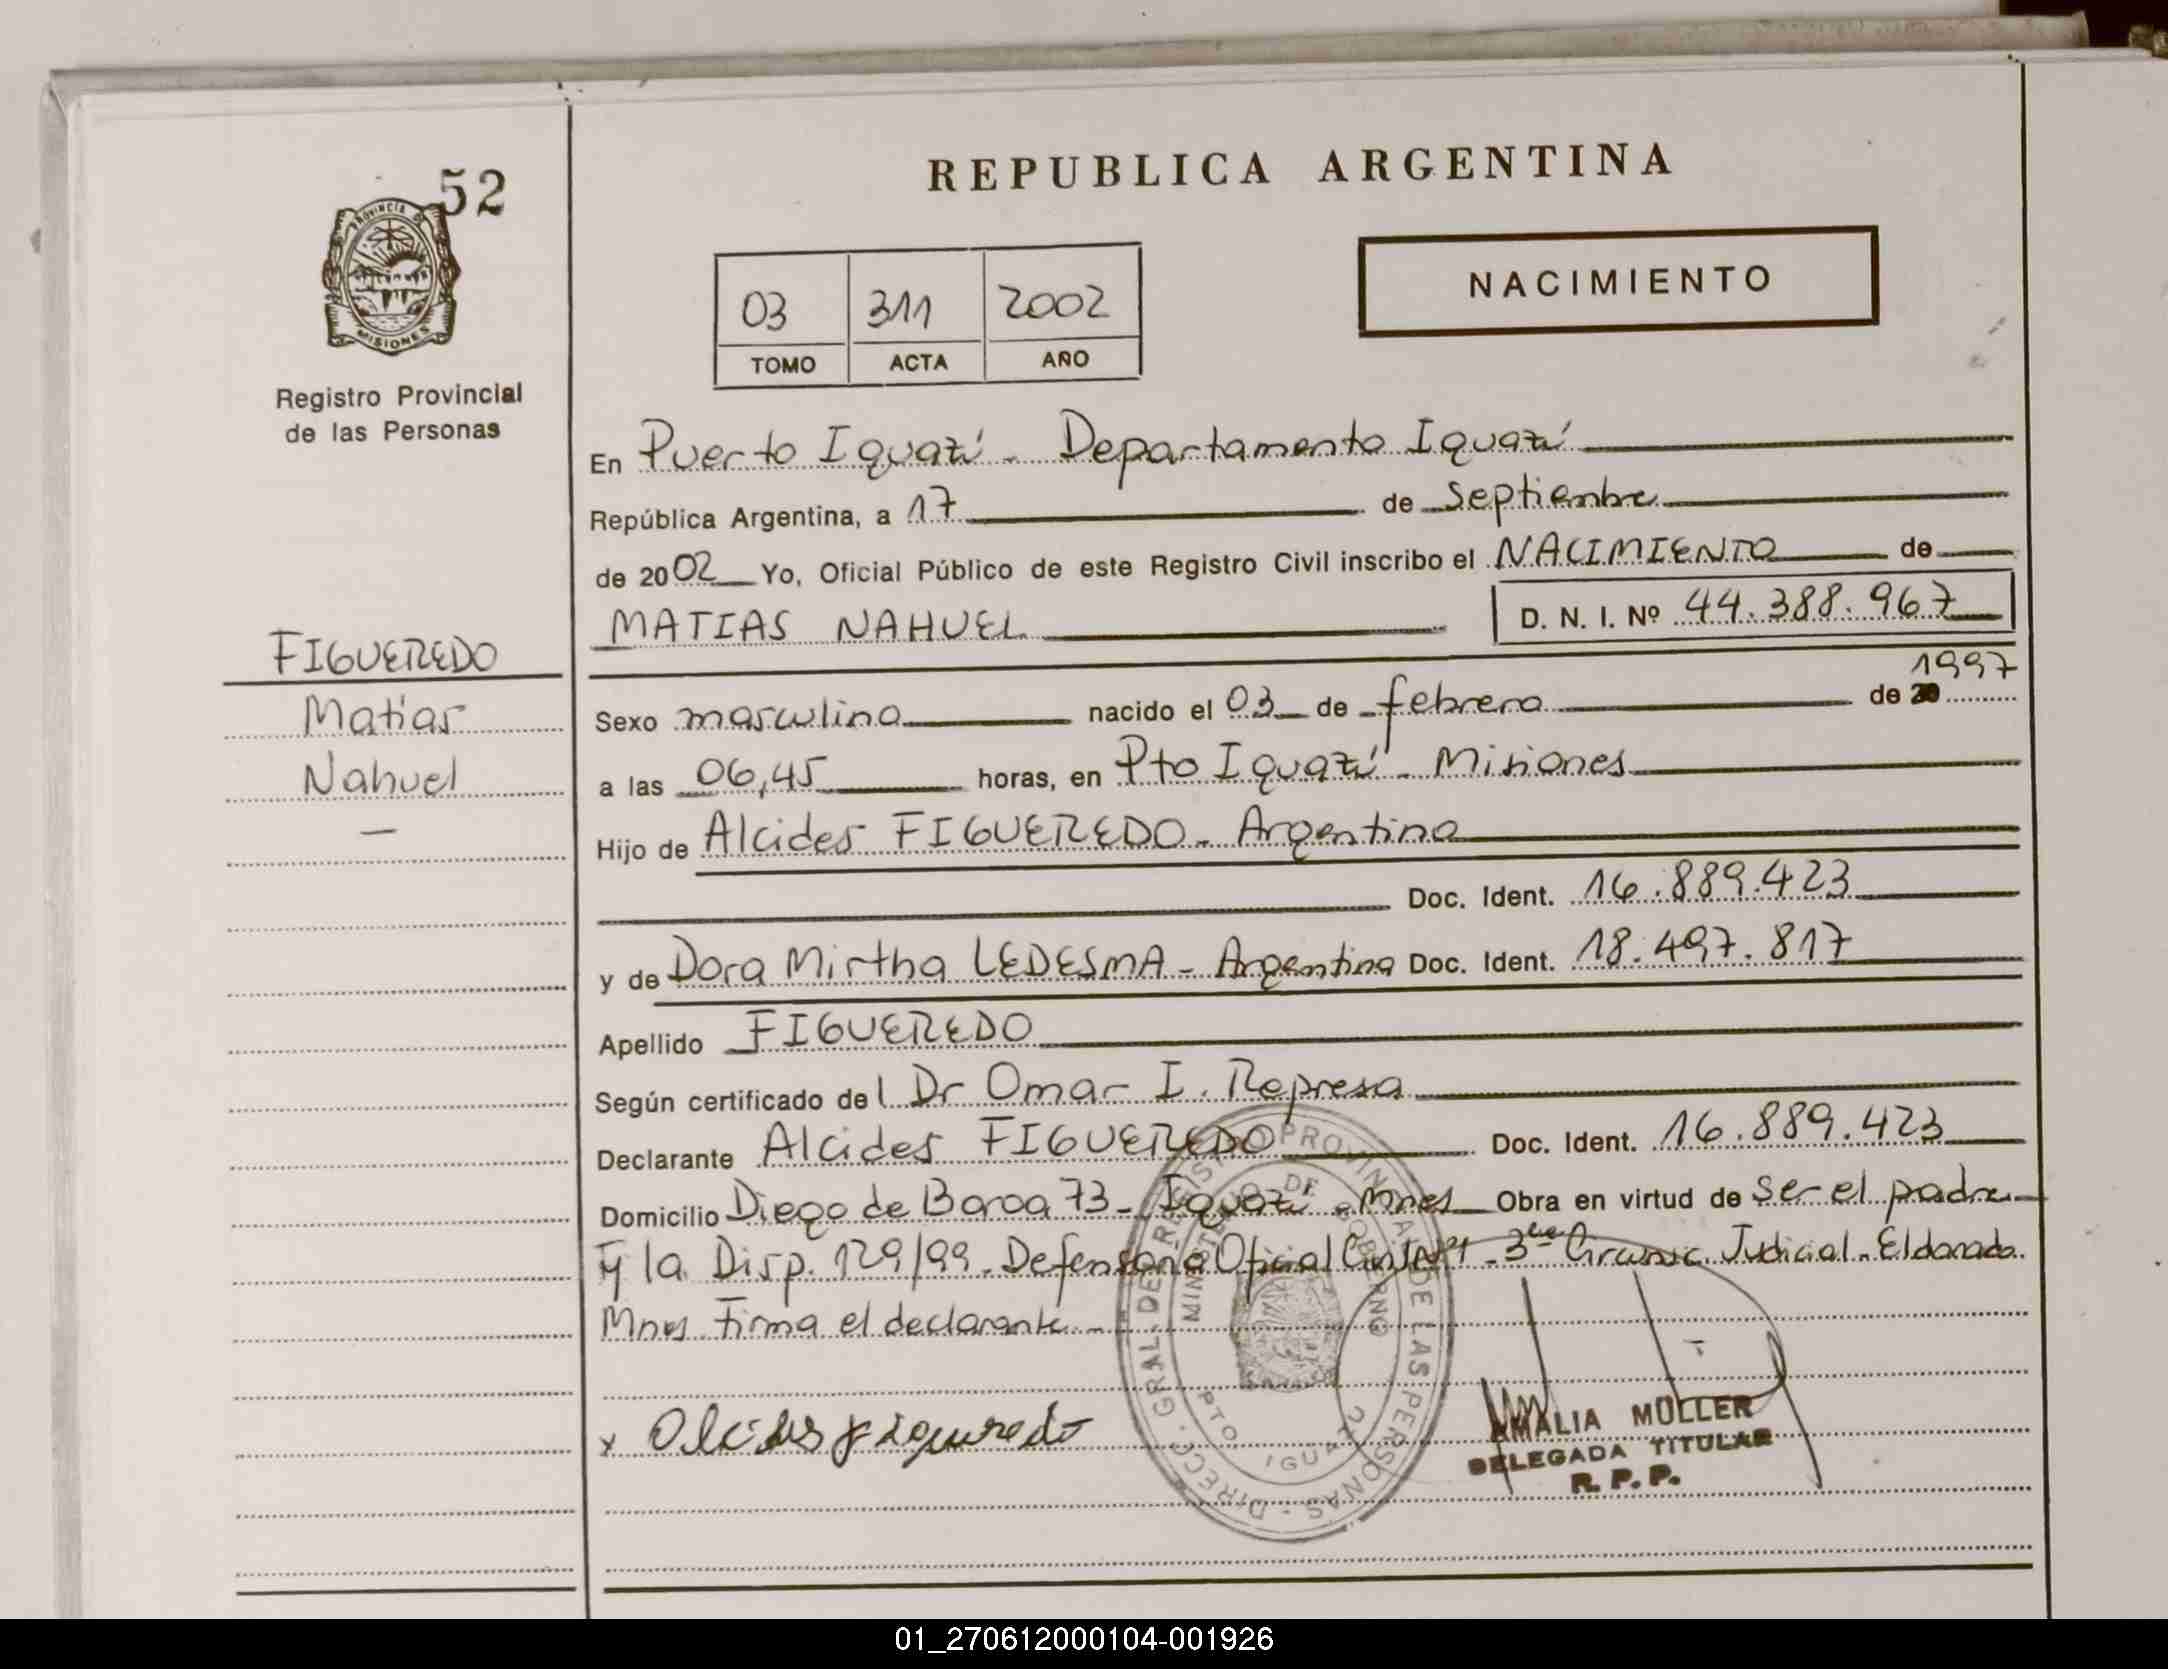 52
PROVINCIA DE
MISIONES
Registro Provincial
de las Personas
FIGUEREDO
Matías
Nahuel
—
REPUBLICA ARGENTINA
NACIMIENTO
03 311 2002
TOMO ACTA AÑO
En Puerto Iguazú - Departamento Iguazú
República Argentina, a 17 de septiembre
de 2002 Yo, Oficial Público de este Registro Civil inscribo el NACIMIENTO de
MATIAS NAHUEL D. N. I. Nº 44.388.967
1997
Sexo masculino nacido el 03 de febrero de 20
a las 06,45 horas, en Pto Iguazú - Misiones
Hijo de Alcides FIGUEREDO - Argentino
Doc. Ident. 16.889.423
y de Dora Mirtha LEDESMA - Argentina Doc. Ident. 18.497.817
Apellido FIGUEREDO
Según certificado del Dr Omar I. Represa
Declarante Alcides FIGUEREDO Doc. Ident. 16.889.423
Domicilio Diego de Boroa 73 - Iguazú - Mnes Obra en virtud de ser el padre
y la Disp. 129/99 - Defensoría Oficial Nº1 - 3ra Judicial - Eldorado
Mnes. Firma el declarante -
x Alcides Figueredo
DIRECC. GRAL. DE REGISTRO PROVINCIAL DE LAS PERSONAS
MINISTERIO DE GOBIERNO
PTO. IGUAZU
AMALIA MULLER
DELEGADA TITULAR
R. P. P.
01_270612000104-001926